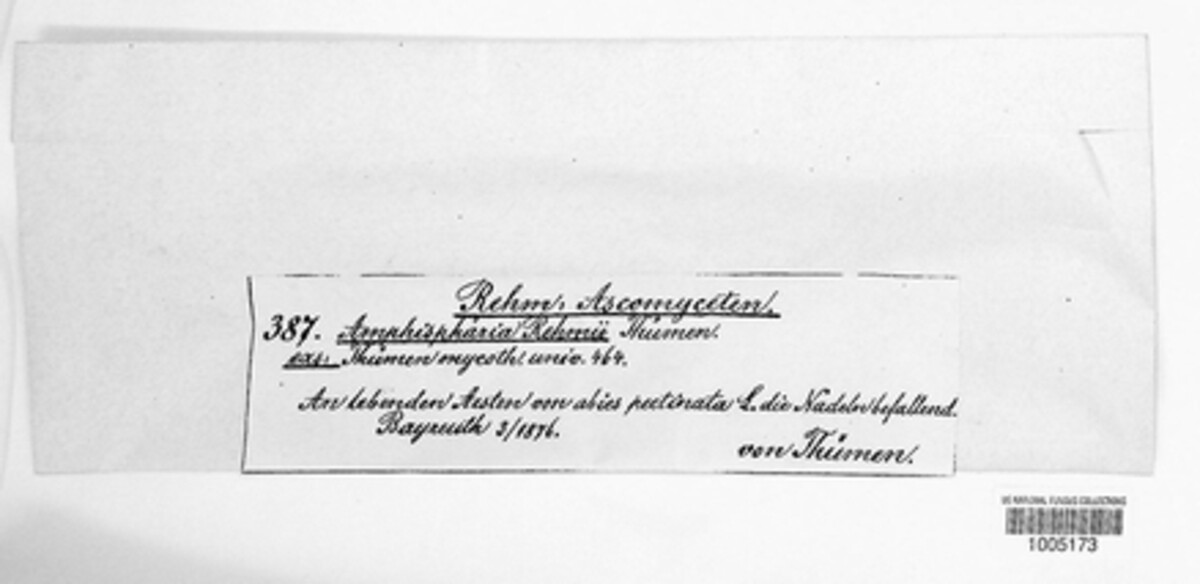 Rehm: Ascomyceten.
387. Amphisphäria Rehmii Thümen.
exs: Thümen mycoth. univ. 464.
An lebenden Aesten von abies pectinata L. die Nadeln befallend.
Bayreuth 3/1876.
von Thümen.
US NATIONAL FUNGUS COLLECTIONS
1005173